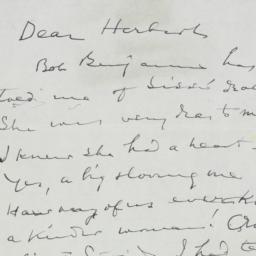 Dear Herbert
Bob Benjamin has
me of Sissie's
She was very dear to m
I knew she had a heart
Yes, a big & loving one
How many of us ever k
a kinder woman!
I had to